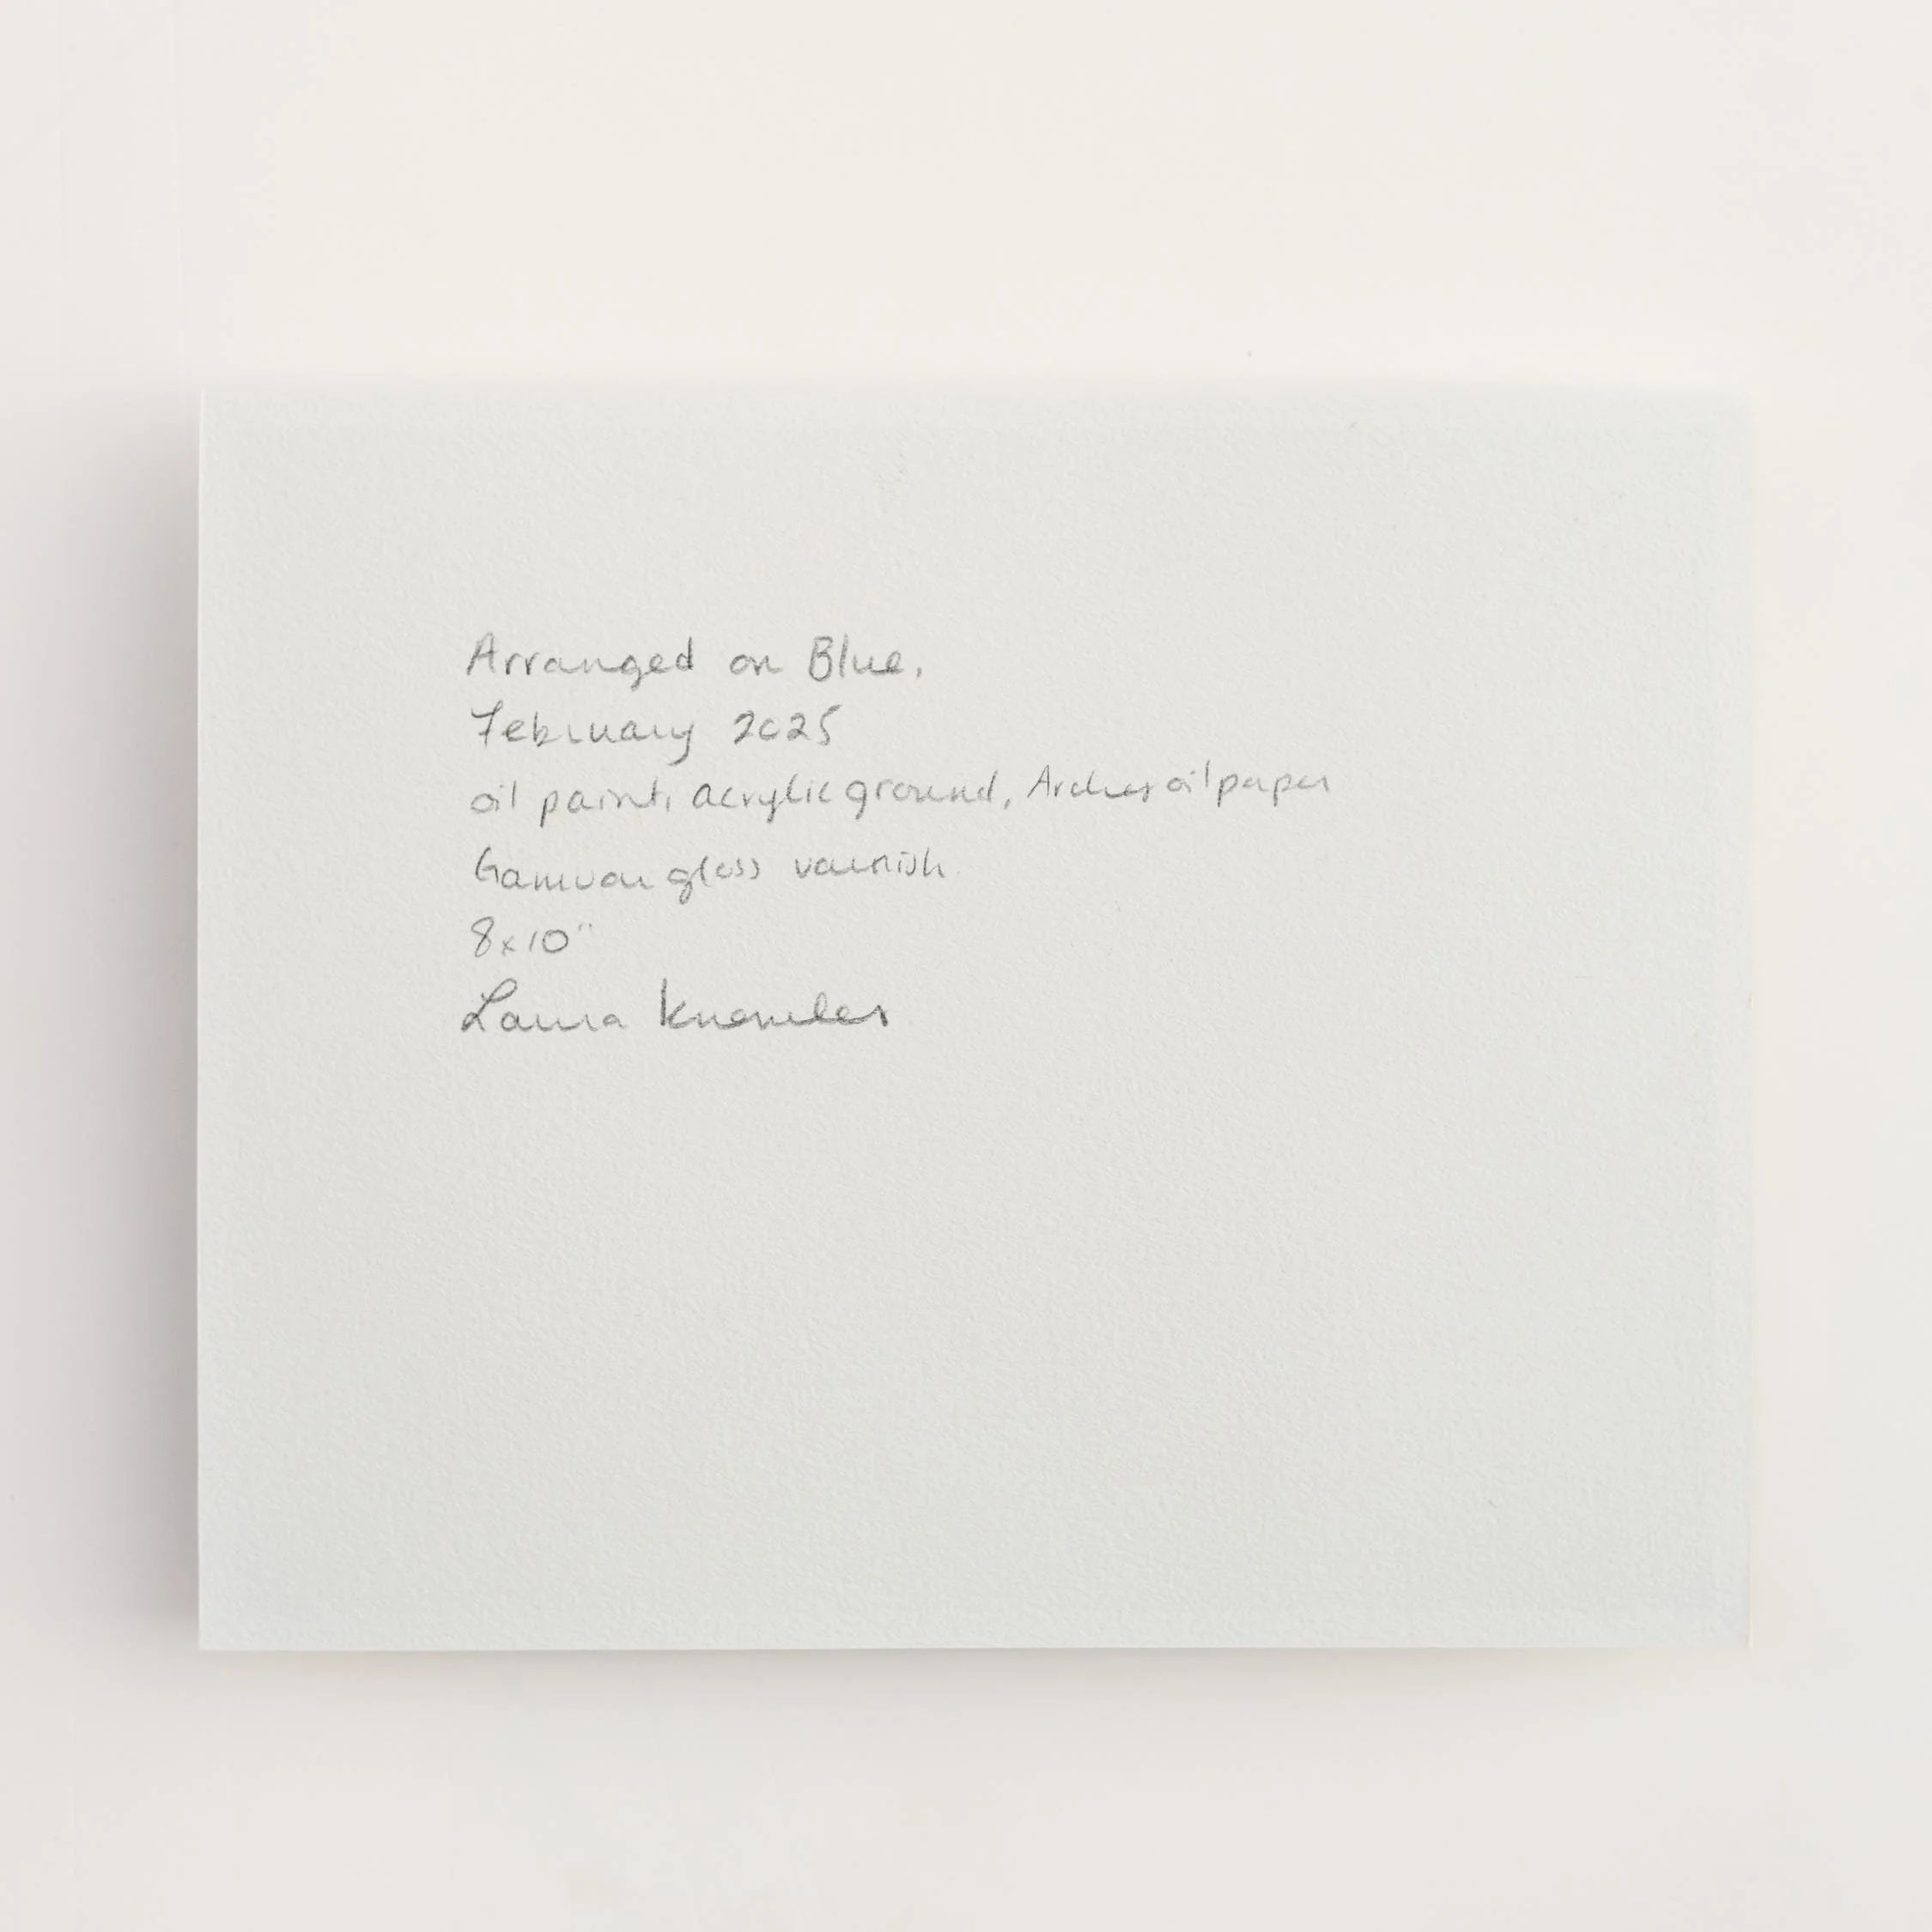 Arranged on Blue,
February 2025
oil paint, acrylic ground, Arches oil paper
Gamvar gloss varnish
8x10"
Laura Knowles